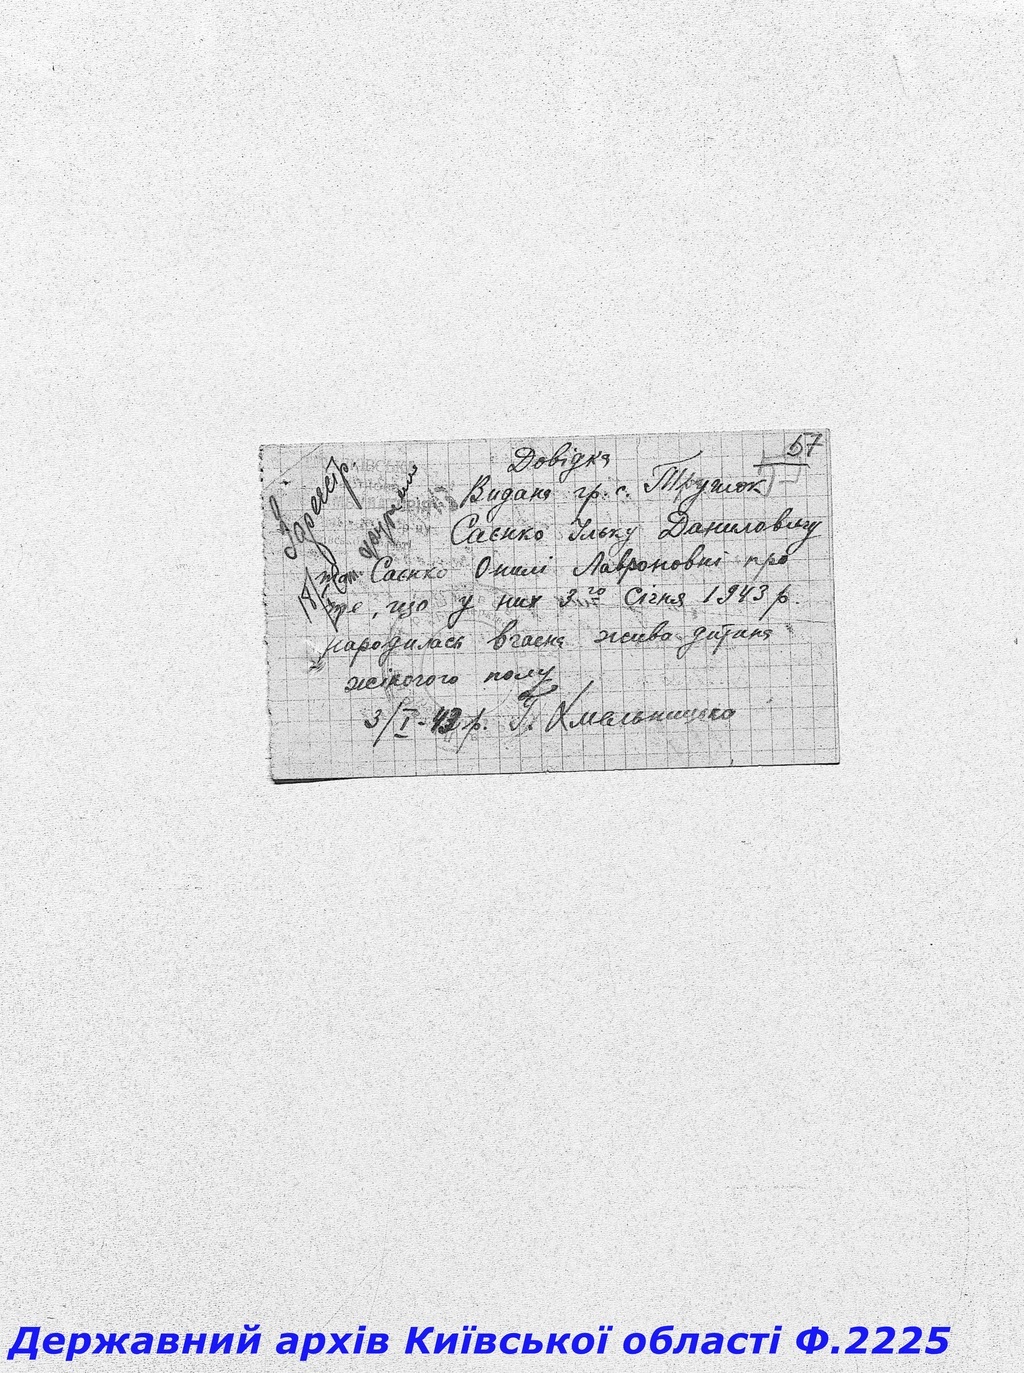 57
Довідка
Видана гр. с. Трушок
Саєнко Ільку Даниловичу
та Саєнко Онилі Лавроновні про
те, що у них 3го Січня 1943 р.
народилась вчасна жива дитина
жіночого полу
3/I-43 р. Г. Хмельницька
Державний архів Київської області Ф.2225